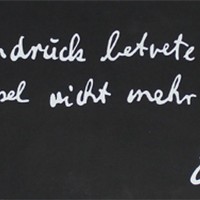 ndruck betrete
sel nicht mehr